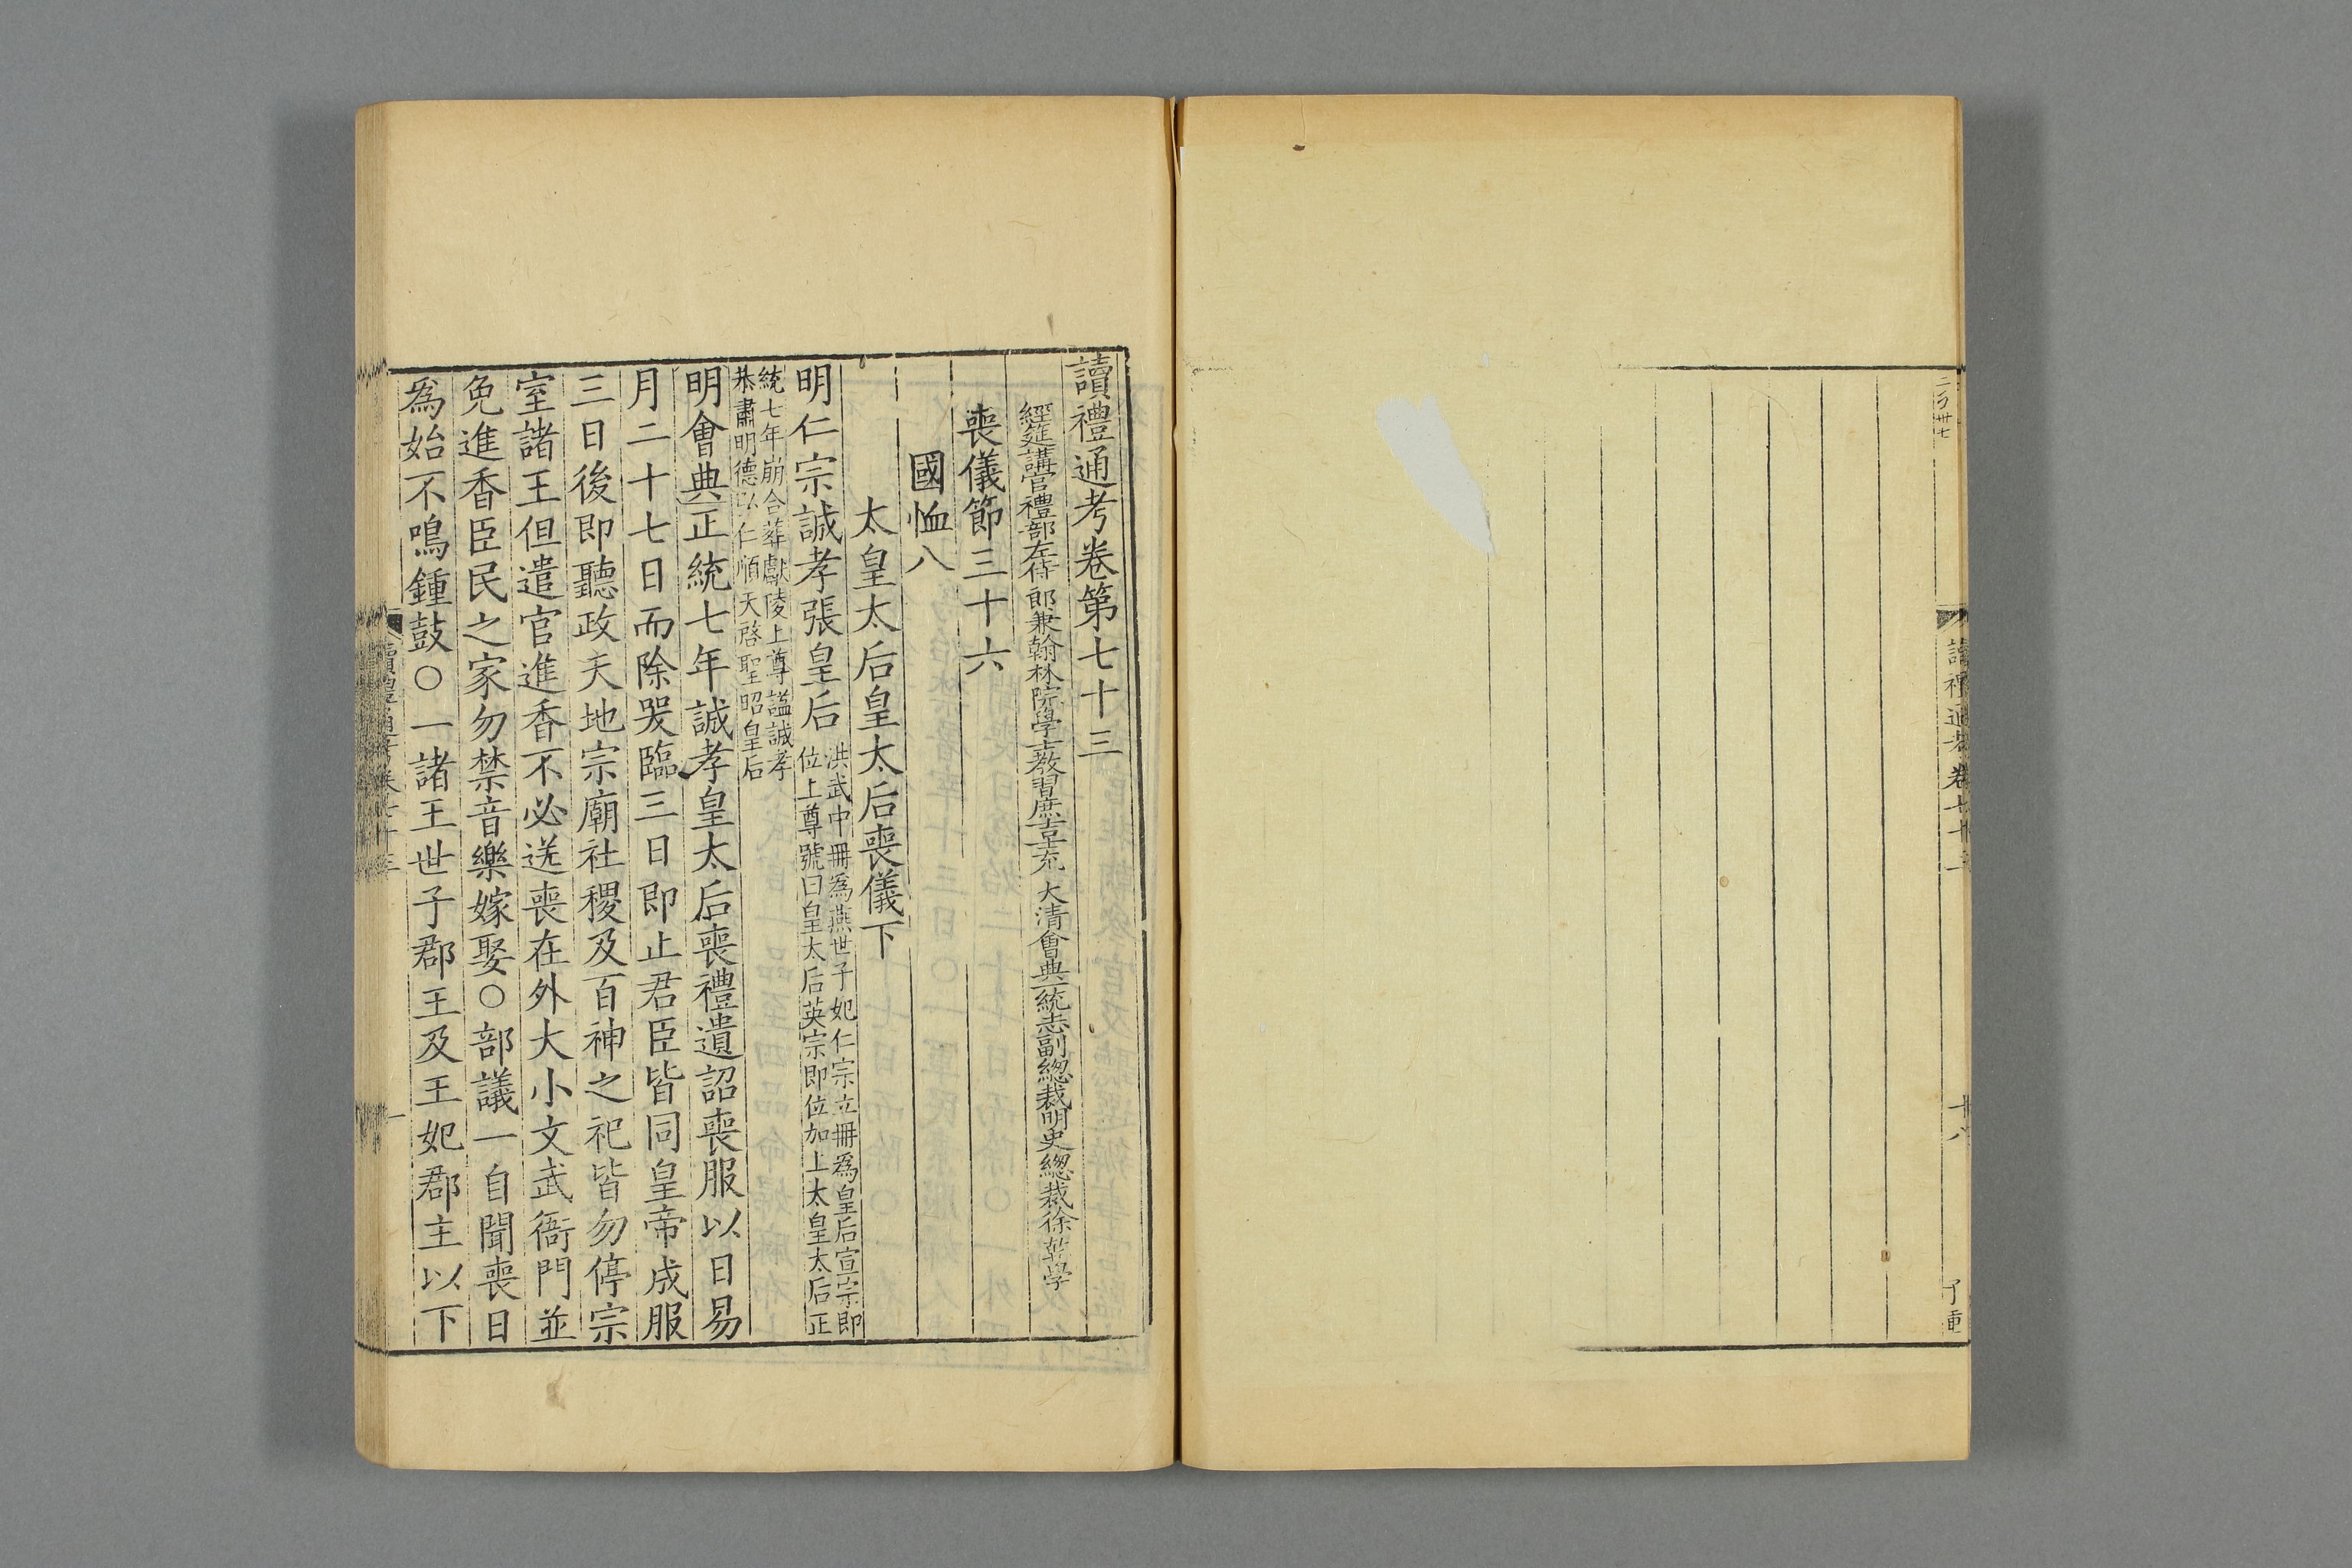 讀禮通考卷七十二
十八
讀禮通考卷第七十三
經筵講官禮部左侍郎兼翰林院學士教習庶吉士充大清會典一統志副總裁明史總裁徐乾學
喪儀節三十六
國恤八
太皇太后皇太后喪儀下
明仁宗誠孝張皇后洪武中冊為燕世子妃仁宗立冊為皇后宣宗即
位上尊號曰皇太后英宗即位加上太皇太后正
統七年崩合葬獻陵上尊諡誠孝
恭肅明德弘仁順天啓聖昭皇后
明會典正統七年誠孝皇太后喪禮遺詔喪服以日易
月二十七日而除哭臨三日即止君臣皆同皇帝成服
三日後即聽政天地宗廟社稷及百神之祀皆勿停宗
室諸王但遣官進香不必送喪在外大小文武衙門並
免進香臣民之家勿禁音樂嫁娶○部議一自聞喪日
為始不鳴鍾鼓○一諸王世子郡王及王妃郡主以下
讀禮通考卷七十三
一